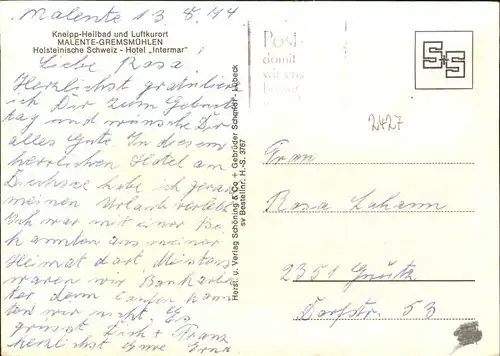 Malente 13.5.
Kneipp-Heilbad und Luftkurort
MALENTE-GREMSMÜHLEN
Holsteinische Schweiz - Hotel „Intermar"
Liebe Rosa
Herzlichst gratuliere
ich Dir zum Geburts
tag und wünsche Dir
alles Gute. In diesem
herrlichen Hotel am
Dieksee habe ich
meinen Urlaub verlebt
Ich war mit einer Be
kannten aus meiner
Heimat dort Meistens
waren wir
denn laufen konn
ten wir nicht. Es
grüsst Dich + Franz
herzlichst Eure Erna
Herst. u. Verlag Schöning & Co + Gebrüder Schmidt - Lübeck
sv Bestellnr. H.-S. 3767
Post-
damit
wir uns
S+S
2427
Frau
Rosa
2351
Dorfstr. 53